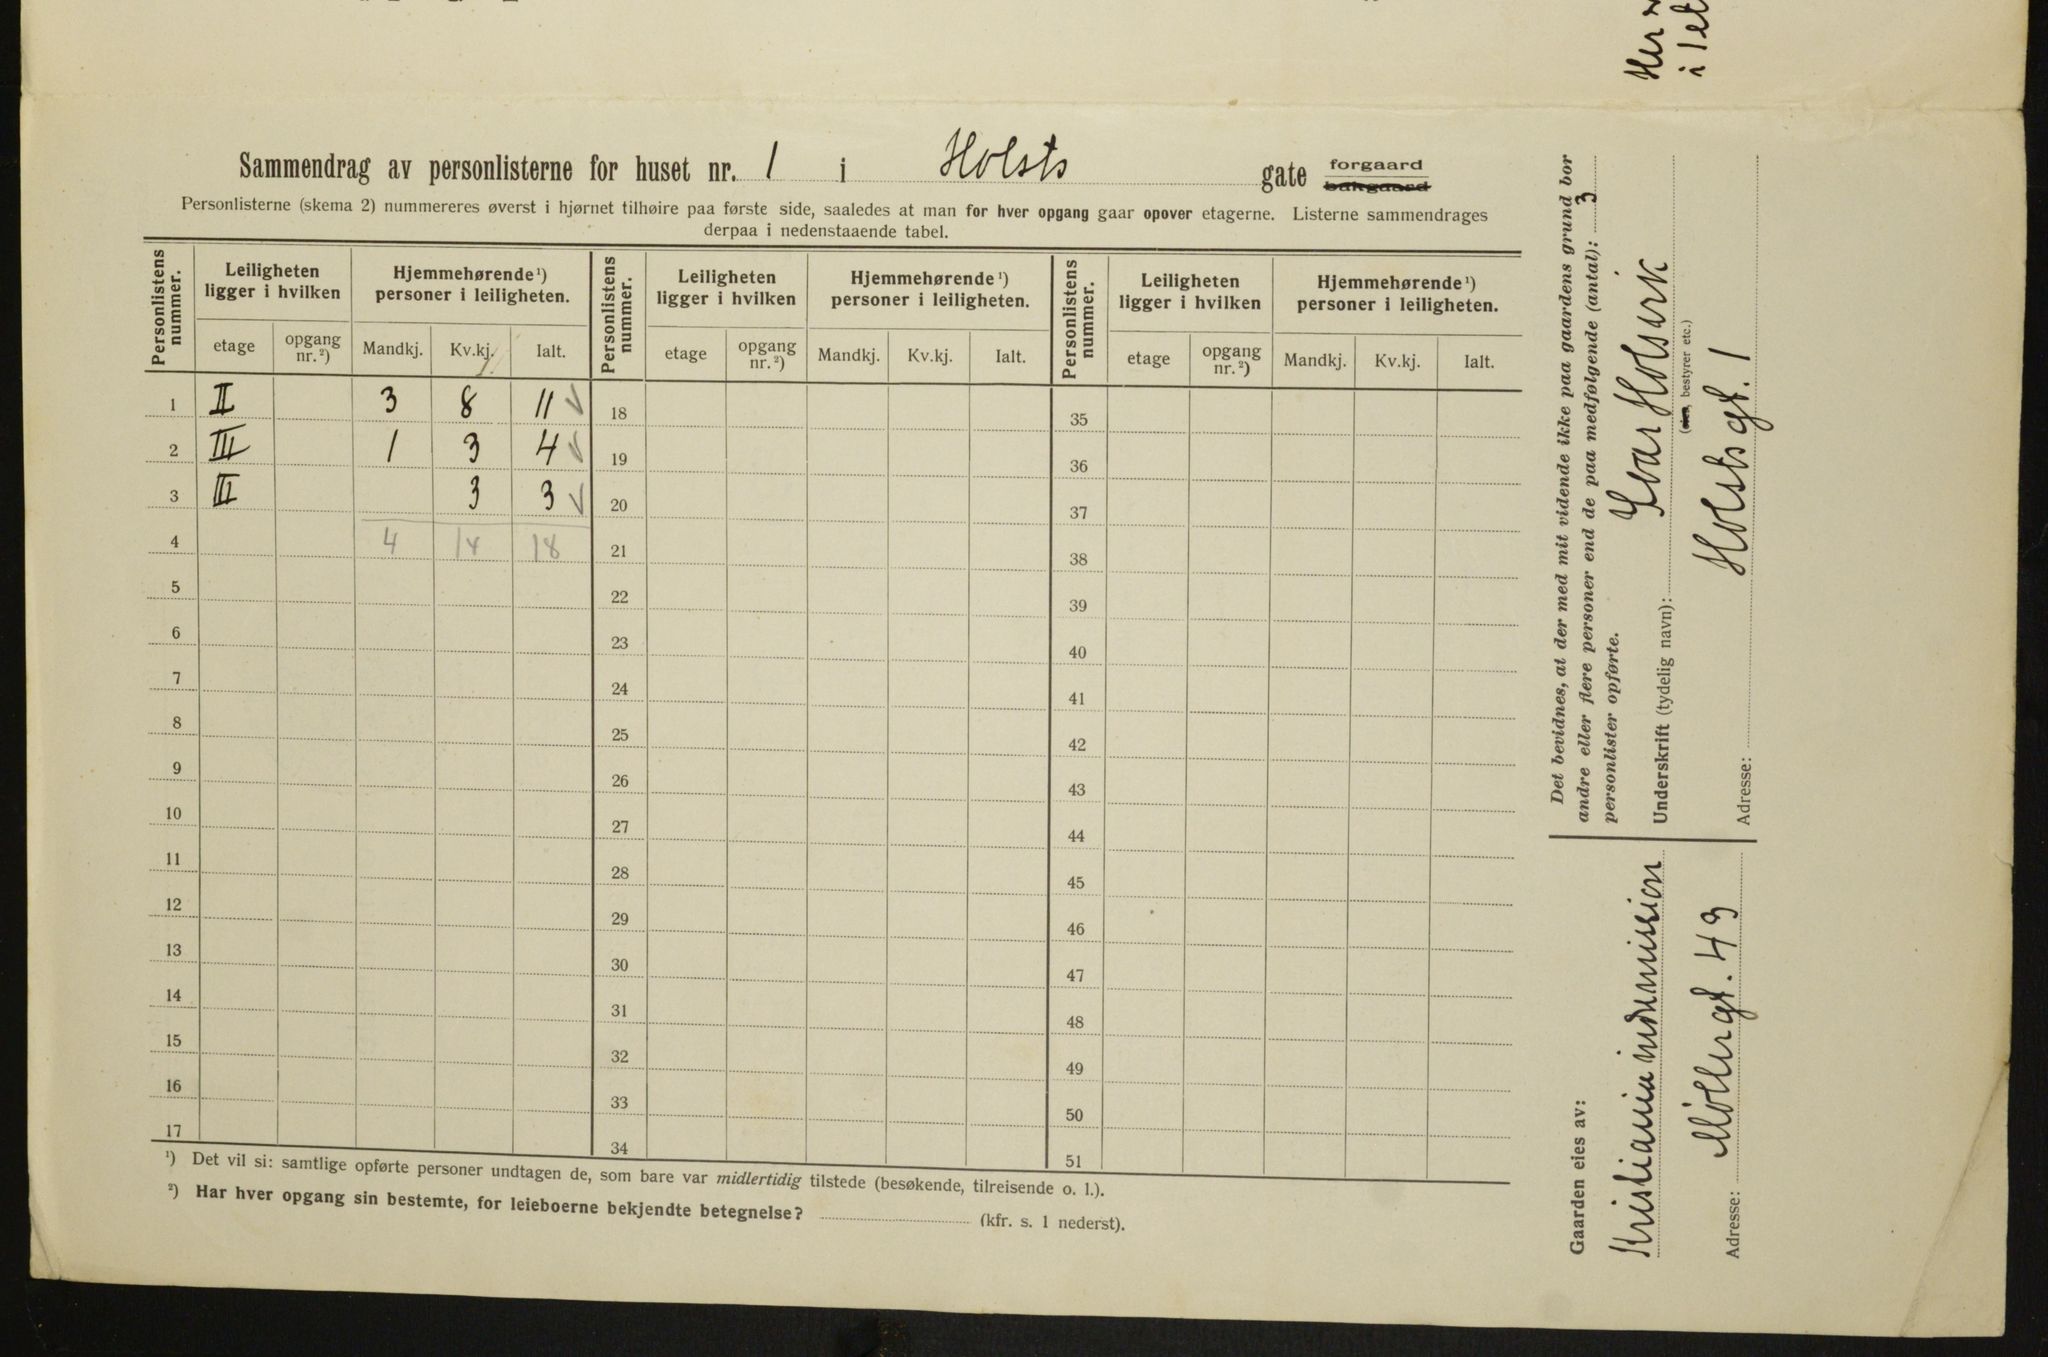 Sammendrag av personlisterne for huset nr. 1 i Holsts gate forgaard bakgaard
Personlisterne (skema 2) nummereres øverst i hjørnet tilhøire paa første side, saaledes at man for hver opgang gaar opover etagerne. Listerne sammendrages
derpaa i nedenstaaende tabel.
Personlistens nummer. Leiligheten ligger i hvilken Hjemmehørende ¹) personer i leiligheten. Personlistens nummer. Leiligheten ligger i hvilken Hjemmehørende ¹) personer i leiligheten. Personlistens nummer. Leiligheten ligger i hvilken Hjemmehørende ¹) personer i leiligheten.
etage opgang nr. ²) Mandkj. Kv.kj. Ialt. etage opgang nr. ²) Mandkj. Kv.kj. Ialt. etage opgang nr. ²) Mandkj. Kv.kj. Ialt.
1 II 3 8 11 18 35
2 III 1 3 4 19 36
3 III 3 3 20 37
4 4 14 18 21 38
5 22 39
6 23 40
7 24 41
8 25 42
9 26 43
10 27 44
11 28 45
12 29 46
13 30 47
14 31 48
15 32 49
16 33 50
17 34 51
¹) Det vil si: samtlige opførte personer undtagen de, som bare var midlertidig tilstede (besøkende, tilreisende o. l.).
²) Har hver opgang sin bestemte, for leieboerne bekjendte betegnelse? (kfr. s. 1 nederst).
Det bevidnes, at der med mit vidende ikke paa gaardens grund bor
andre eller flere personer end de paa medfølgende (antal): 3
personlister opførte.
Underskrift (tydelig navn): Ivar Holsvik
(eier, bestyrer etc.)
Adresse: Holsts gt. 1
Gaarden eies av:
Kristiania indremission
Adresse: Møllergt. 43
Her
i let